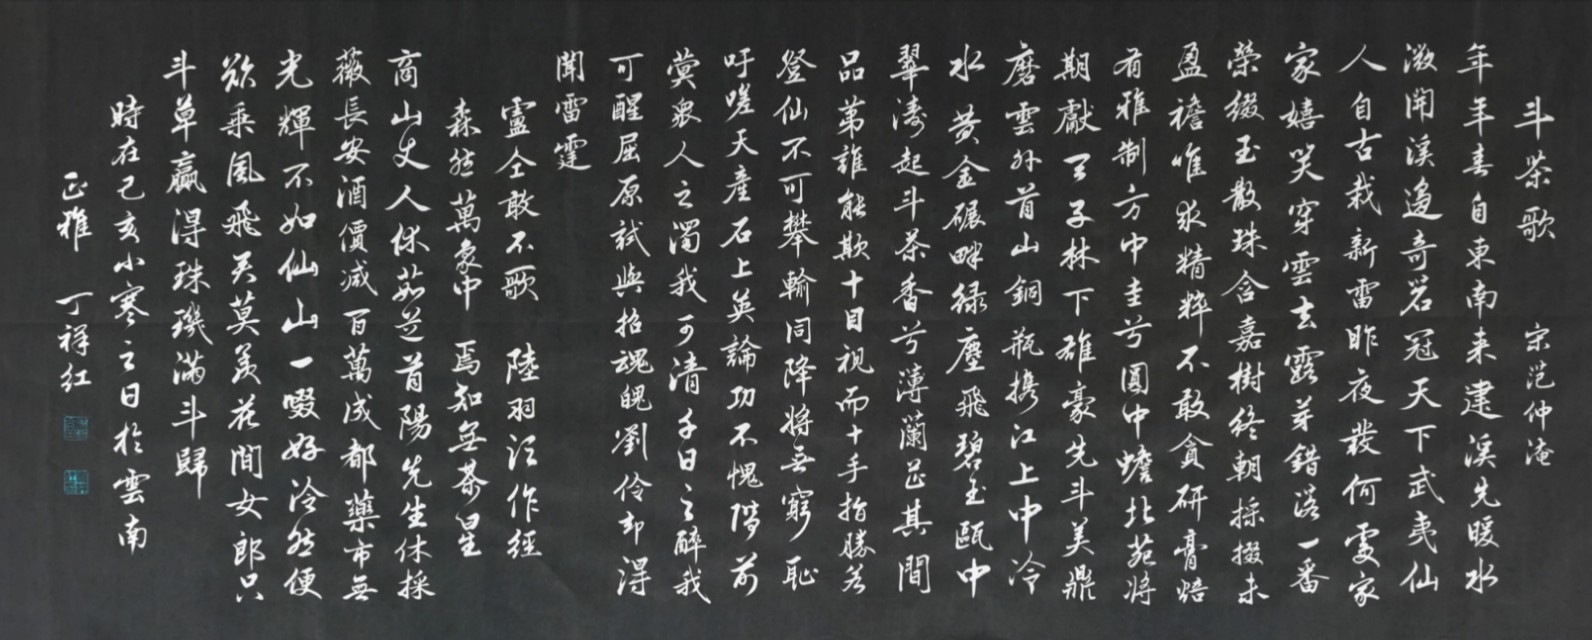 斗茶歌 宋范仲淹
年年春自東南来建溪先暖水
微開溪邊奇茗冠天下武夷仙
人自古栽新雷昨夜發何處家
家嬉笑穿雲去露芽錯落一番
榮綴玉散珠含嘉樹終朝採掇未
盈襜唯求精粹不敢貪研膏焙
有雅制方中圭兮圓中蟾北苑將
期獻天子林下雄豪先斗美鼎
磨雲外首山銅瓶携江上中冷
水黄金碾畔緑塵飛碧玉甌中
翠濤起斗茶香兮薄蘭芷其間
品第誰能欺十目視而十手指勝若
登仙不可攀輸同降將無窮恥
吁嗟天産石上英論功不愧階前
蓂衆人之濁我可清千日之醉我
可醒屈原試與招魂魄劉伶却得
聞雷霆
盧仝敢不歌 陸羽須作經
森然萬象中 焉知無茶星
商山丈人休茹芝首陽先生休採
薇長安酒價減百萬成都藥市無
光輝不如仙山一啜好泠然便
欲乘風飛君莫羨花間女郎只
斗草贏得珠璣滿斗歸
時在己亥小寒之日於雲南
正雅 丁祥红